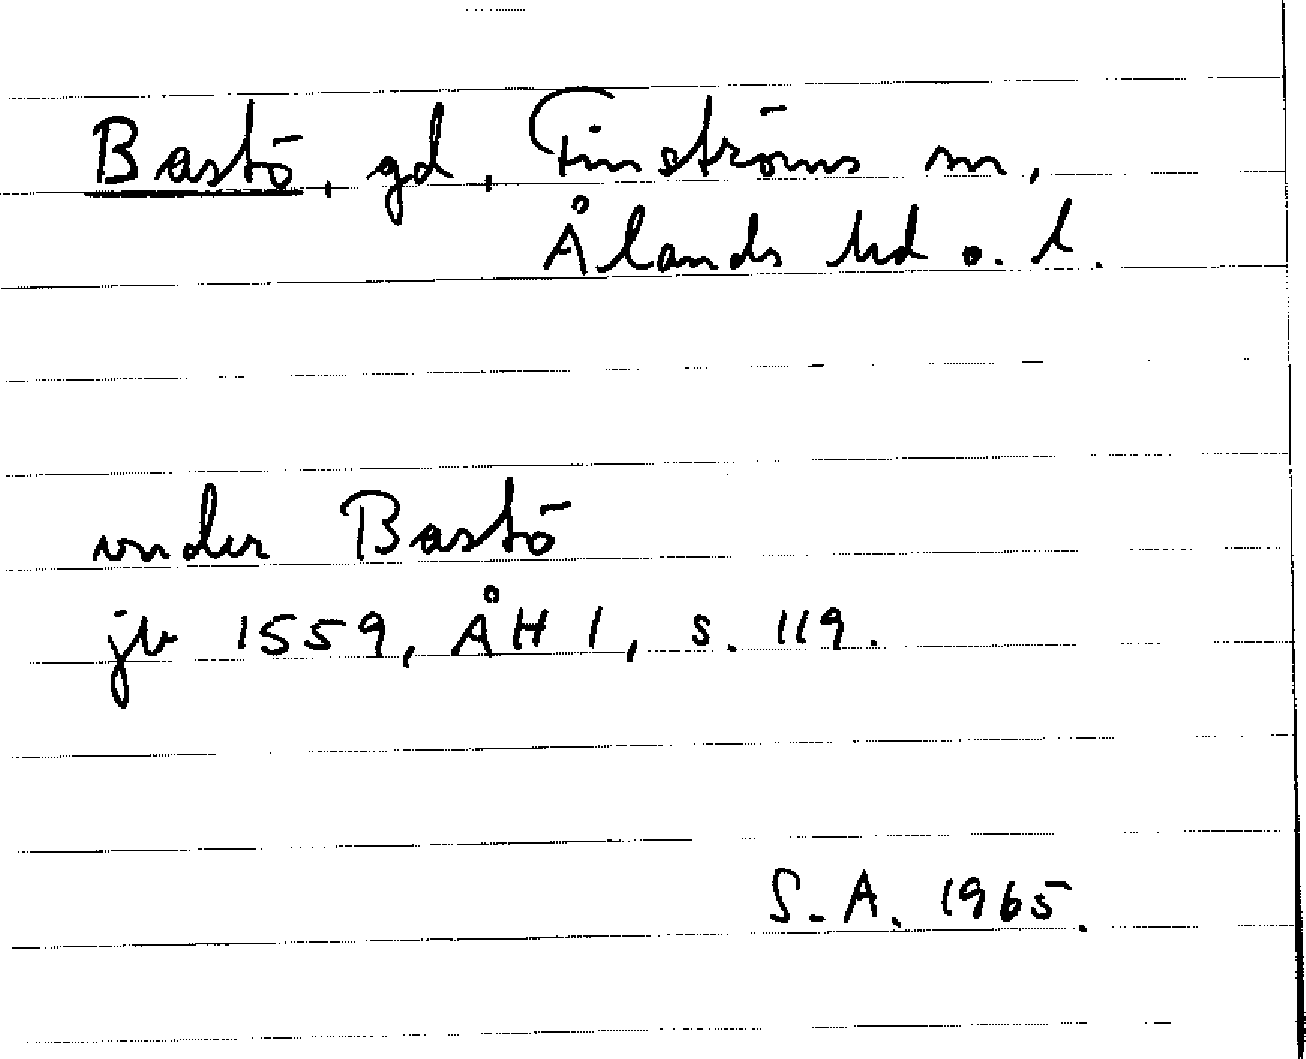 Bastö, gd, Finströms sn,
Ålands hd o. l.
under Bastö
jb 1559, ÅH 1, s. 119.
S.A. 1965.